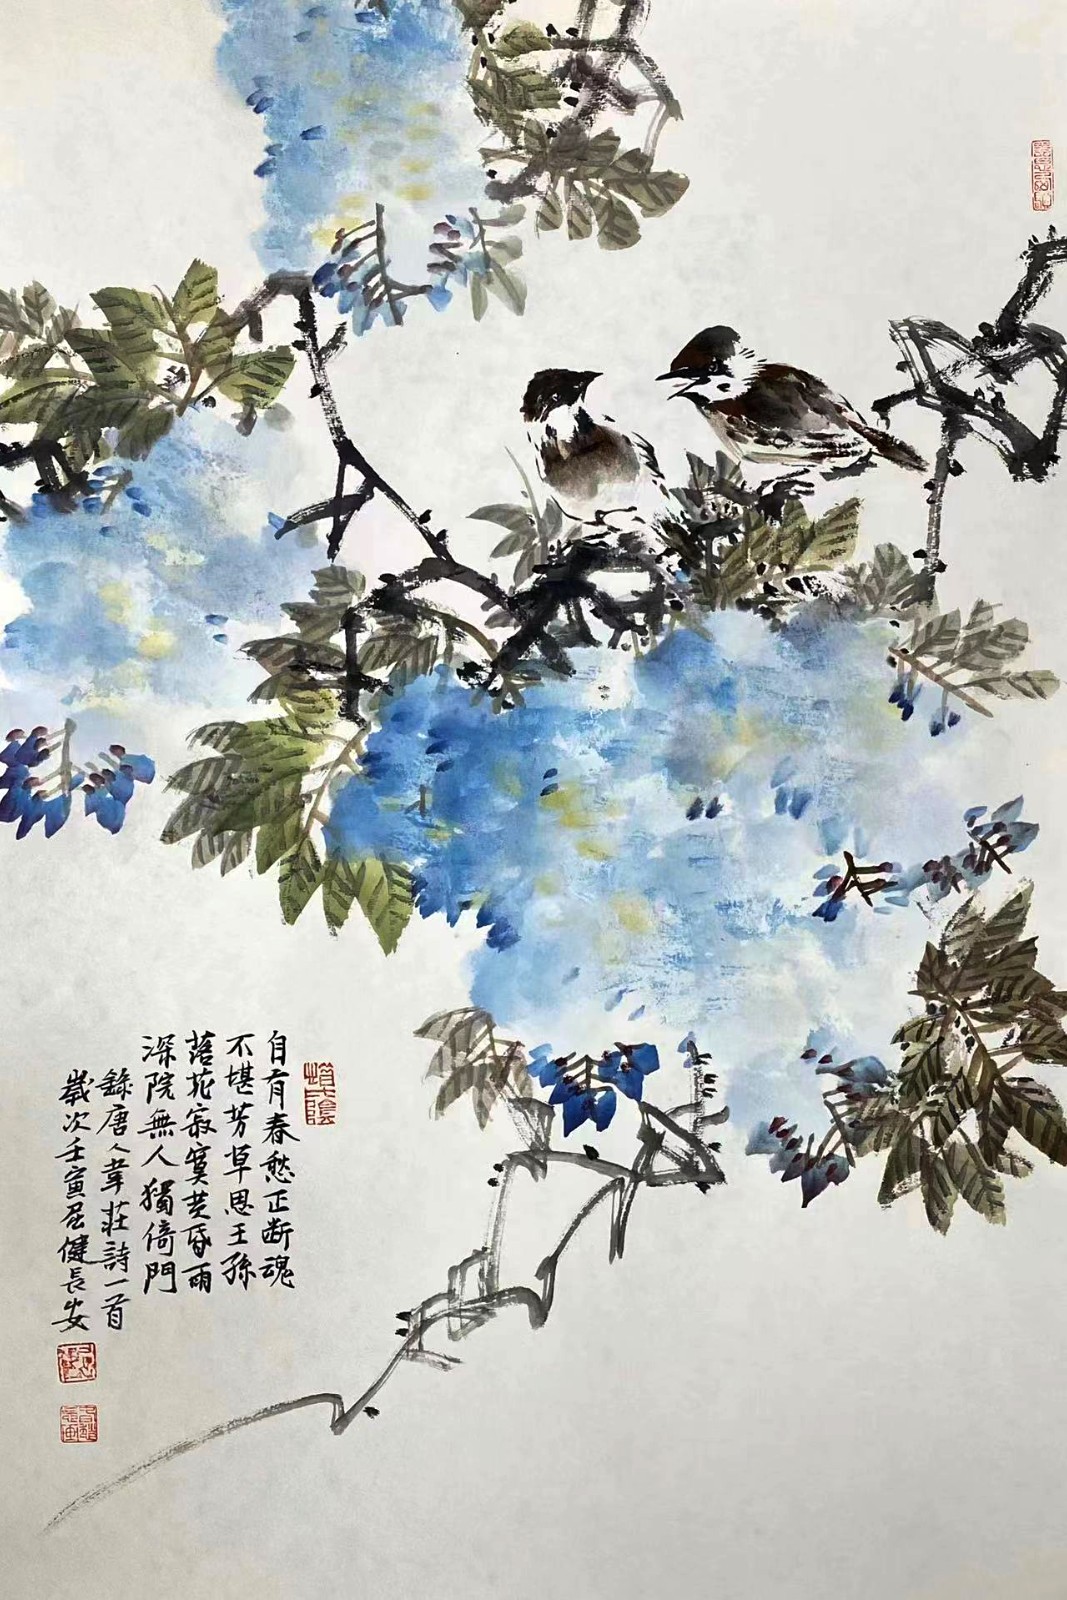 自有春愁正断魂
不堪芳草思王孫
落花寂寞黄昏雨
深院無人獨倚門
錄唐人韋莊詩一首
歲次壬寅屈健長安